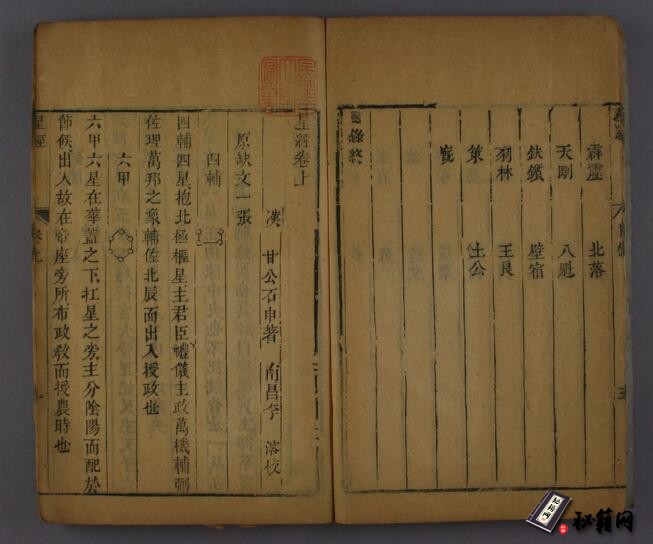 霹靂 北落
天剛 八魁
鈇鑕 壁宿
羽林 王良
策 土公
廐
錄終
星經卷上
漢 甘公石申著 南昌李 校
原缺文一張
四輔
四輔四星抱北極樞星主君臣禮儀主政萬機輔弼
佐理萬邦之象輔佐北辰而出入授政也
六甲
六甲六星在華蓋之下杠星之旁主分陰陽而配於
節候出入故在帝座旁所布政教而授農時也
星經
秘籍网